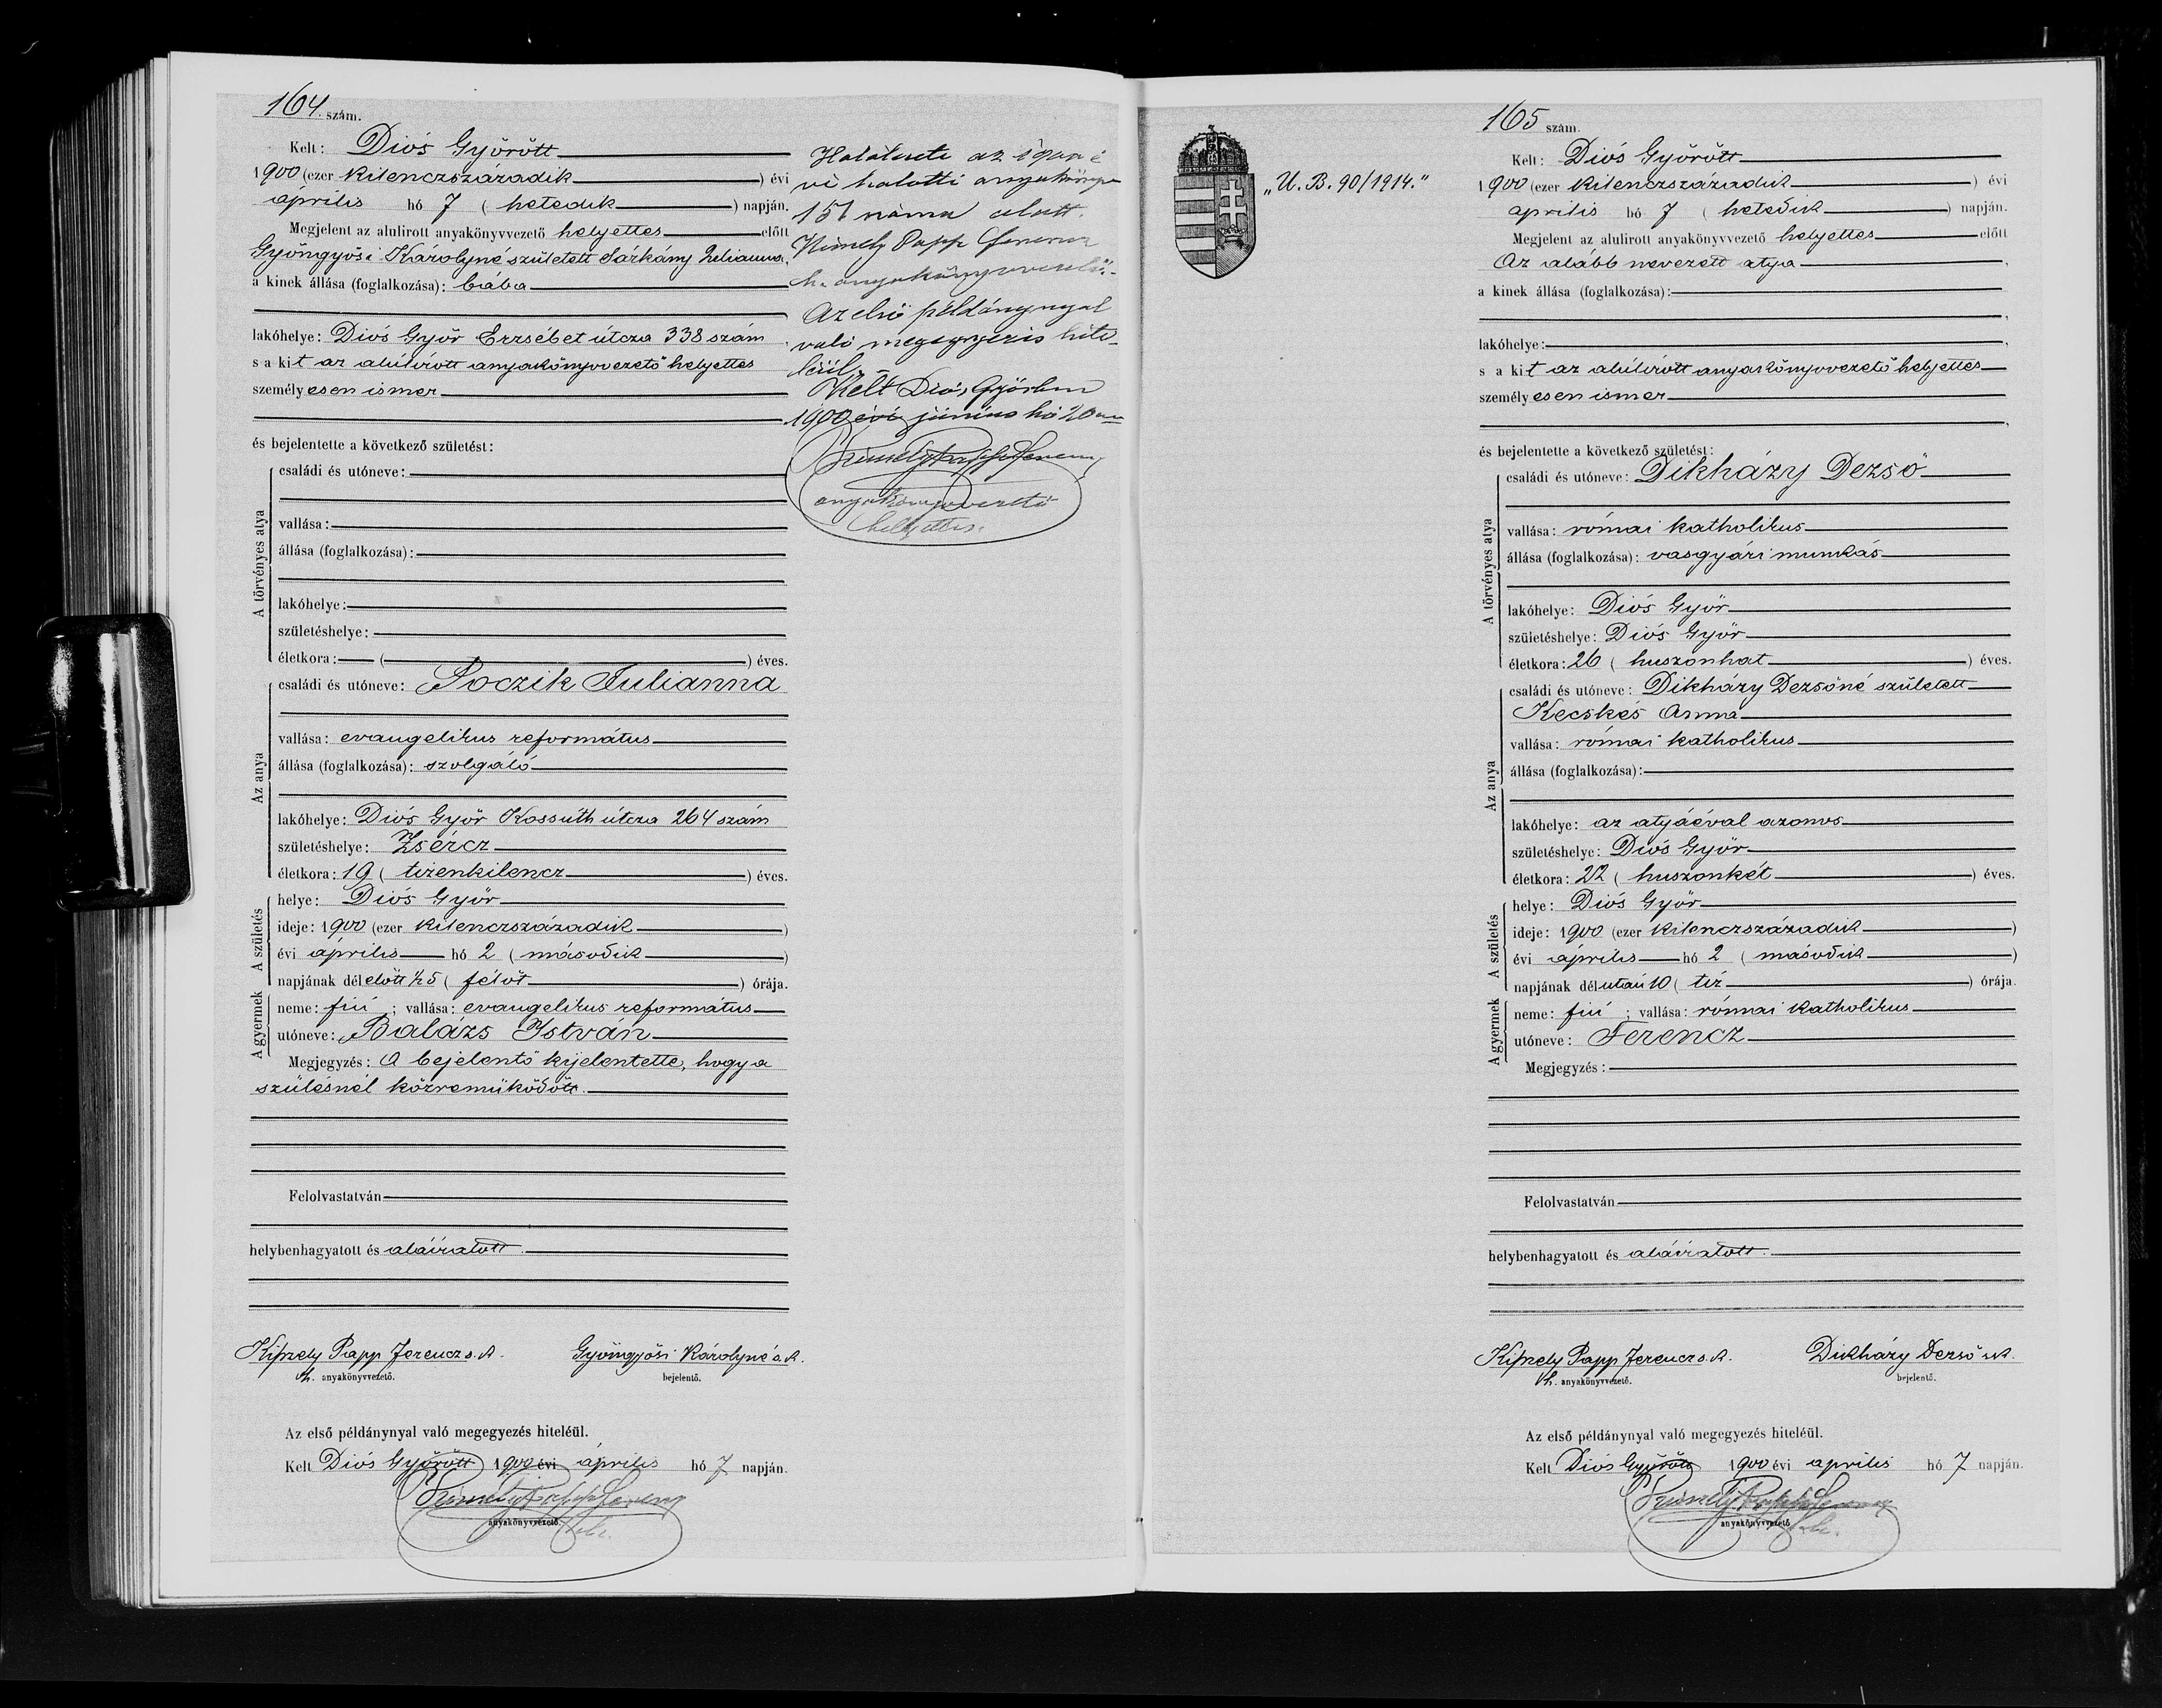 164. szám.
Kelt: Diós Győrött
1900 (ezer kilenczszázadik) évi
április hó 7 (hetedik) napján.
Megjelent az alulirott anyakönyvvezető helyettes előtt
Gyöngyösi Károlyné született Sárkány
a kinek állása (foglalkozása): bába
lakóhelye: Diós Győr Erzsébet útcza 338 szám
s a kit az alúlírott anyakönyvvezető helyettes
személyesen ismer
és bejelentette a következő születést:
A törvényes atya
családi és utóneve:
vallása:
állása (foglalkozása):
lakóhelye:
születéshelye:
életkora: ( ) éves.
Az anya
családi és utóneve: Poczik Julianna
vallása: evangelikus református
állása (foglalkozása): szolgáló
lakóhelye: Diós Győr Kossúth útcza 264 szám
születéshelye: Zsércz
életkora: 19 (tizenkilencz) éves.
A születés
helye: Diós Győr
ideje: 1900 (ezer kilenczszázadik)
évi április hó 2 (második)
napjának délelőtt ½5 (félöt) órája.
A gyermek
neme: fiú; vallása: evangelikus református
utóneve: Balázs István
Megjegyzés: A bejelentő kijelentette, hogy a
szülésnél közreműködött.
Felolvastatván
helybenhagyatott és aláíratott.
Papp Ferencz s.k.
h. anyakönyvvezető.
Gyöngyösi Károlyné s.k.
bejelentő.
Az első példánynyal való megegyezés hiteléül.
Kelt Diós Győrött 1900 évi április hó 7 napján.
Papp Ferencz
anyakönyvvezető
h.
az 1900 é
vi halotti anyakönyv
151 alatt.
Papp Ferencz
h. anyakönyvvezető.
Az első példánynyal
való megegyezés hite-
léül.
Kelt Diós Győrben
1900 évi június hó 20án
Papp Ferencz
anyakönyvvezető
helyettes.
„U. B. 90/1914."
165 szám.
Kelt: Diós Győrött
1900 (ezer kilenczszázadik) évi
április hó 7 (hetedik) napján.
Megjelent az alulirott anyakönyvvezető helyettes előtt
Az alább nevezett atya,
a kinek állása (foglalkozása):
lakóhelye:
s a kit az alúlírott anyakönyvvezető helyettes
személyesen ismer
és bejelentette a következő születést:
A törvényes atya
családi és utóneve: Dikházy Dezső
vallása: római katholikus
állása (foglalkozása): vasgyári munkás
lakóhelye: Diós Győr
születéshelye: Diós Győr
életkora: 26 (huszonhat) éves.
Az anya
családi és utóneve: Dikházy Dezsőné született
Kecskés Anna
vallása: római katholikus
állása (foglalkozása):
lakóhelye: az atyáéval azonos
születéshelye: Diós Győr
életkora: 22 (huszonkét) éves.
A születés
helye: Diós Győr
ideje: 1900 (ezer kilenczszázadik)
évi április hó 2 (második)
napjának délután 10 (tíz) órája.
A gyermek
neme: fiú; vallása: római katholikus
utóneve: Ferencz
Megjegyzés:
Felolvastatván
helybenhagyatott és aláíratott.
Papp Ferencz s.k.
h. anyakönyvvezető.
Dikházy Dezső s.k.
bejelentő.
Az első példánynyal való megegyezés hiteléül.
Kelt Diós Győrött 1900 évi április hó 7 napján.
Papp Ferencz
anyakönyvvezető
h.